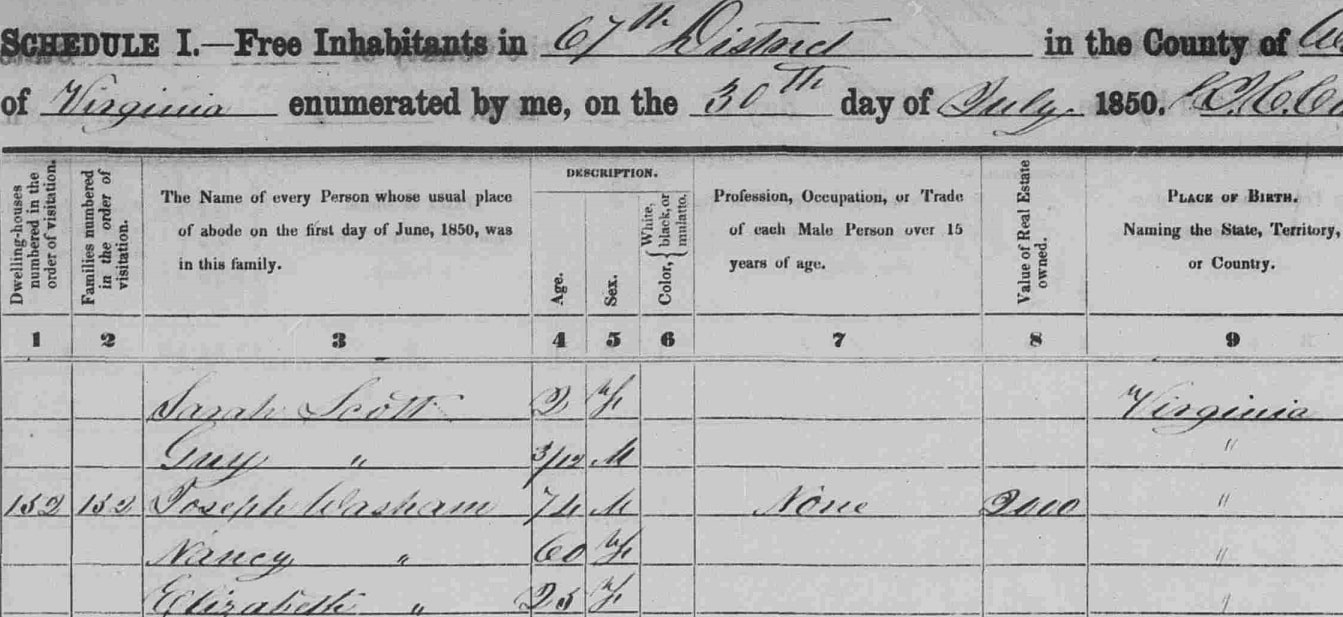 SCHEDULE I.—Free Inhabitants in 67th District in the County of
of Virginia enumerated by me, on the 30th day of July 1850.
Dwelling-houses numbered in the order of visitation.
Families numbered in the order of visitation.
The Name of every Person whose usual place of abode on the first day of June, 1850, was in this family.
DESCRIPTION.
Age.
Sex.
Color, { White, black, or mulatto.
Profession, Occupation, or Trade of each Male Person over 15 years of age.
Value of Real Estate owned.
PLACE OF BIRTH. Naming the State, Territory, or Country.
1 2 3 4 5 6 7 8 9
Sarah Scott 2 F Virginia
Guy " 3/12 M "
152 152 Joseph Washam 74 M None 2000 "
Nancy " 60 F "
Elizabeth " 25 F "